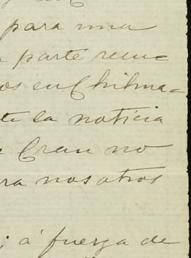 para una
parte reuu-
os en Chihua=
te la noticia
Eran no
ra nosotros
; á fuerza de